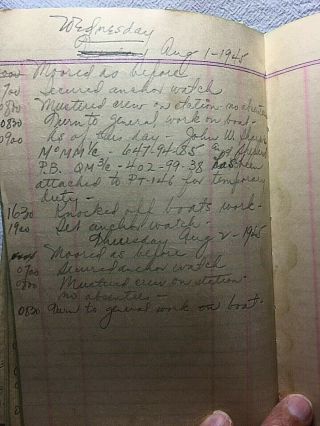 Wednesday
Aug 1 - 1945
0000 Moored as before
0700 Secured anchor watch
0800 Mustured crew on station no absentees
0830 Turn to general work on boat.
0900 As of this day - John W. Sharp
MoMM 1/c - 647-94-85 and
P.B. QM 3/c - 402-99-38 has been
attached to PT-146 for temporary
duty -
1630 Knocked off boats work -
1900 Set anchor watch -
Thursday Aug 2 - 1945
Moored as before
0700 Secured anchor watch
0800 Mustured crew on station -
no absentees -
0830 Turn to general work on boat.